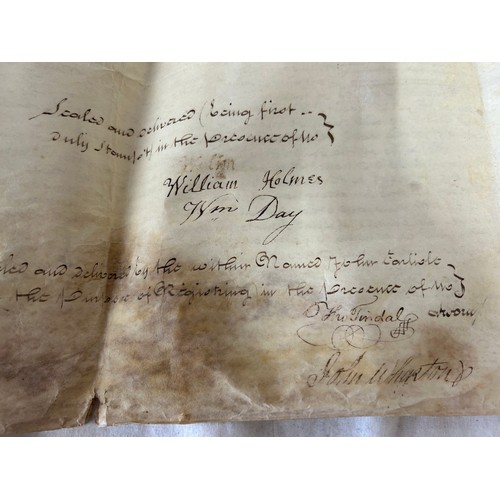 Sealed and delivered (being first --
duly Stampt) in the presence of us }
William Holmes
Wm Day
and delivered by the within Named John Carlisle
the (Purpose of Registring) in the Presence of us }
Tindal
John